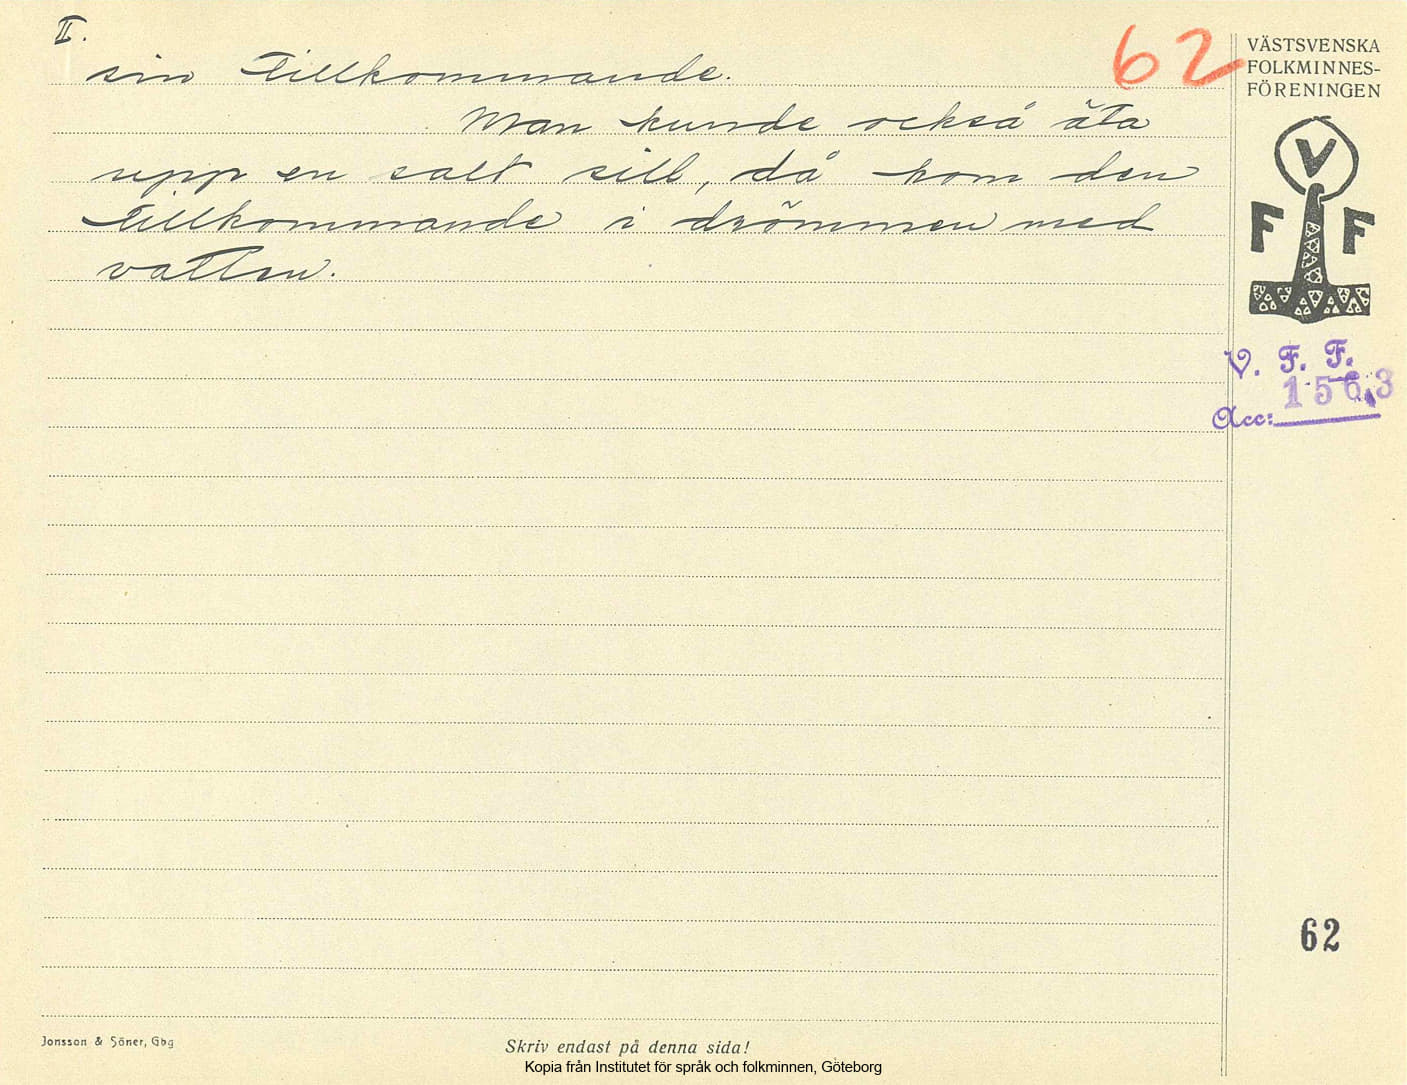 II.
62
sin tillkommande.
Man kunde också äta
upp en salt sill, då kom den
tillkommande i drömmen med
vatten.
VÄSTSVENSKA
FOLKMINNES-
FÖRENINGEN
V
F F
V. F. F.
1563
Acc:
62
Jonsson & Söner, Gbg
Skriv endast på denna sida!
Kopia från Institutet för språk och folkminnen, Göteborg